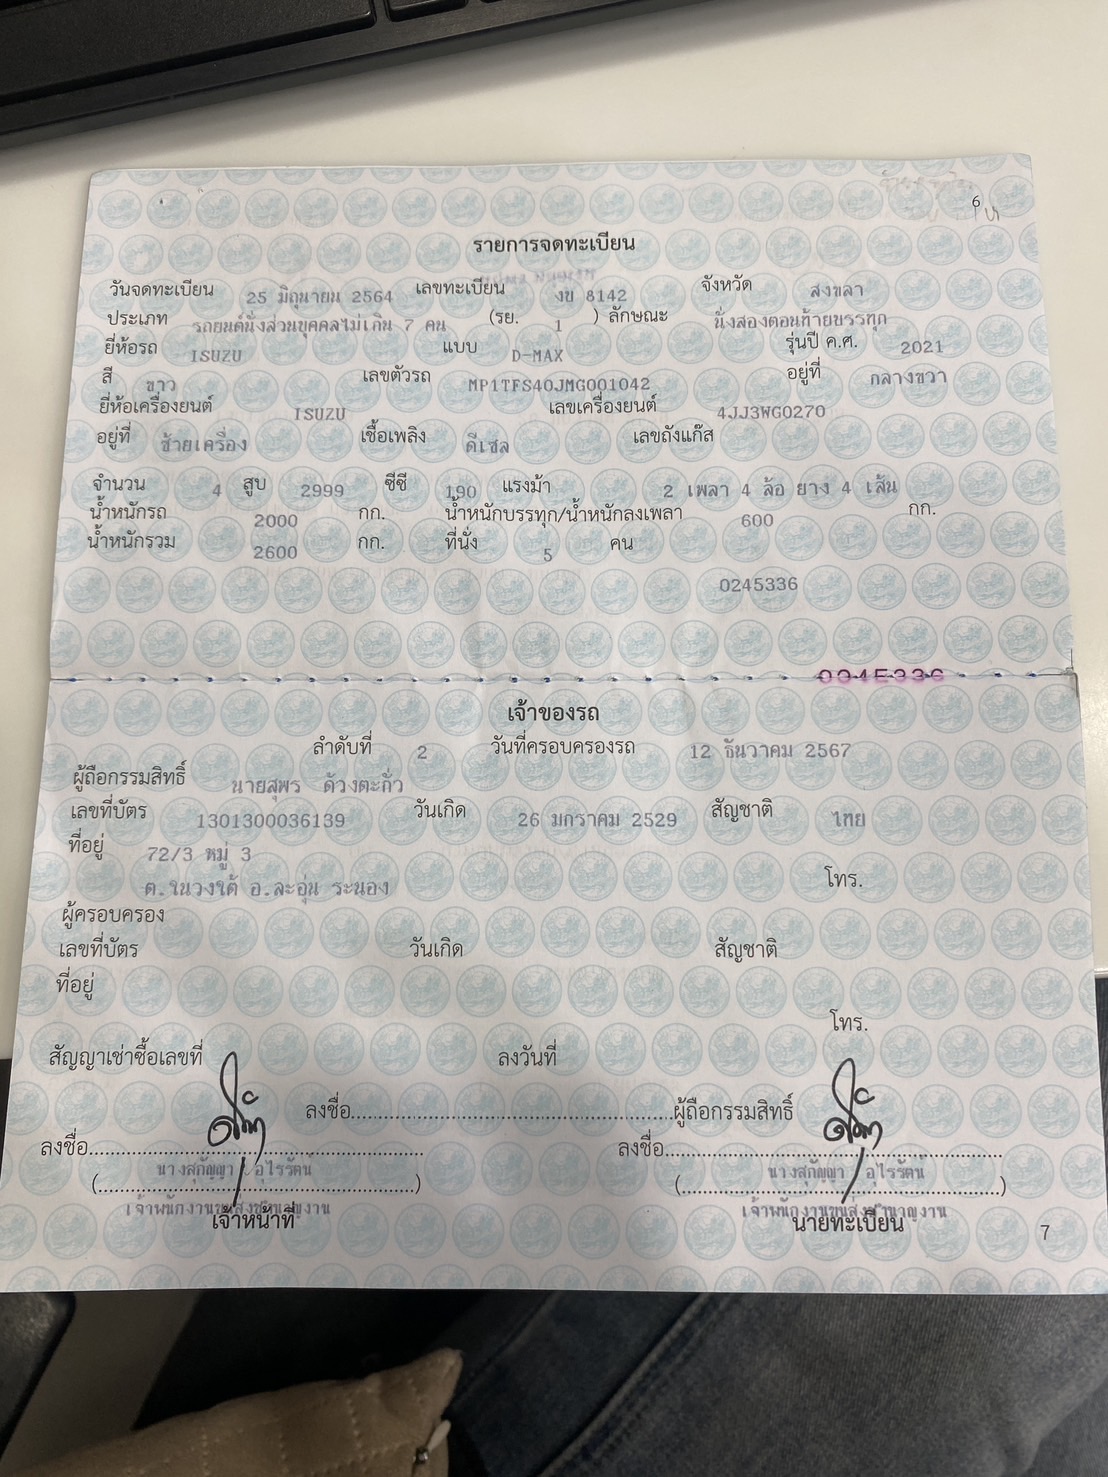 6
รายการจดทะเบียน
วันจดทะเบียน 25 มิถุนายน 2564 เลขทะเบียน งข 8142 จังหวัด สงขลา
ประเภท รถยนต์นั่งส่วนบุคคลไม่เกิน 7 คน (รย. 1 ) ลักษณะ นั่งสองตอนท้ายบรรทุก
ยี่ห้อรถ ISUZU แบบ D-MAX รุ่นปี ค.ศ. 2021
สี ขาว เลขตัวรถ MP1TFS40JMG001042 อยู่ที่ กลางขวา
ยี่ห้อเครื่องยนต์ ISUZU เลขเครื่องยนต์ 4JJ3WG0270
อยู่ที่ ซ้ายเครื่อง เชื้อเพลิง ดีเซล เลขถังแก๊ส
จำนวน 4 สูบ 2999 ซีซี 190 แรงม้า 2 เพลา 4 ล้อ ยาง 4 เส้น
น้ำหนักรถ 2000 กก. น้ำหนักบรรทุก/น้ำหนักลงเพลา 600 กก.
น้ำหนักรวม 2600 กก. ที่นั่ง 5 คน
0245336
เจ้าของรถ
ลำดับที่ 2 วันที่ครอบครองรถ 12 ธันวาคม 2567
ผู้ถือกรรมสิทธิ์ นายสุพร ด้วงตะกั่ว
เลขที่บัตร 1301300036139 วันเกิด 26 มกราคม 2529 สัญชาติ ไทย
ที่อยู่ 72/3 หมู่ 3
ต.ในวงใต้ อ.ละอุ่น ระนอง โทร.
ผู้ครอบครอง
เลขที่บัตร วันเกิด สัญชาติ
ที่อยู่
โทร.
สัญญาเช่าซื้อเลขที่ ลงวันที่
ลงชื่อ ผู้ถือกรรมสิทธิ์
ลงชื่อ ลงชื่อ
(นางสุกัญญา อุไรรัตน์) (นางสุกัญญา อุไรรัตน์)
เจ้าพนักงานขนส่งชำนาญงาน เจ้าพนักงานขนส่งชำนาญงาน
เจ้าหน้าที่ นายทะเบียน
7